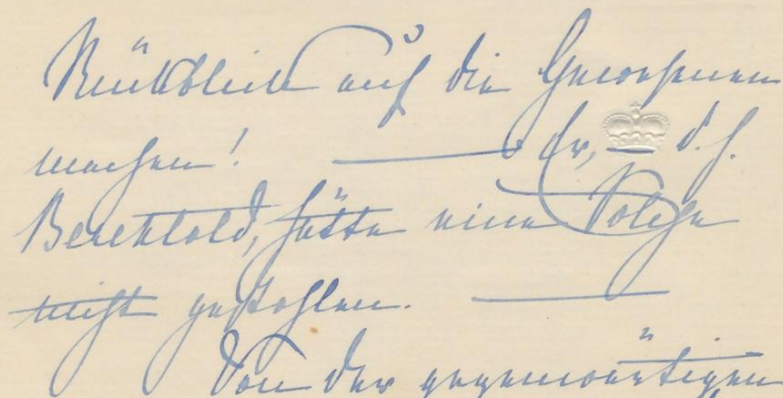 Rückblick auf die Gewesenen
machen! — Er, d. h.
Berchtold, hätte eine Solche
nicht gestohlen. —
Von der gegenwärtigen